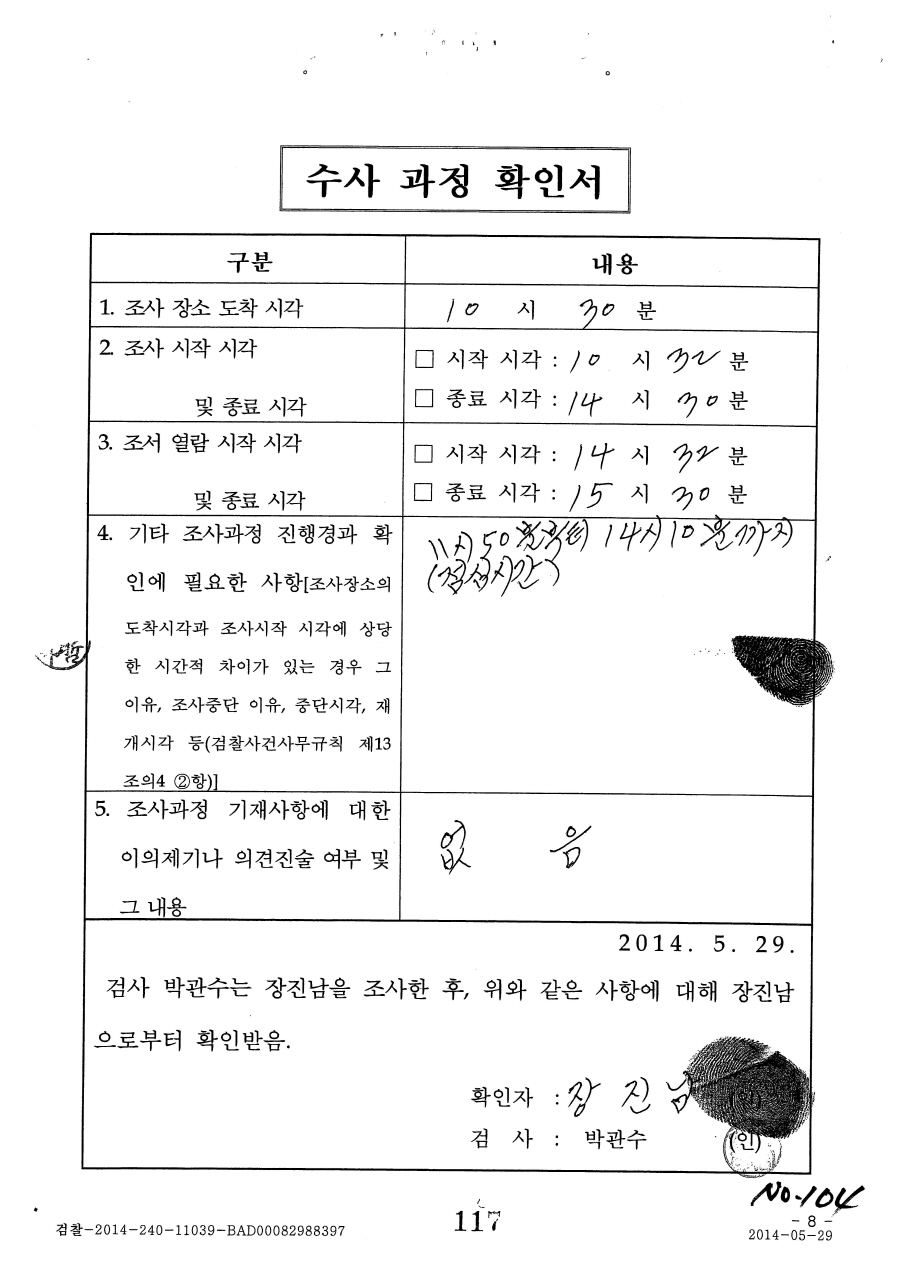 수사 과정 확인서
구분 내용
1. 조사 장소 도착 시각 10 시 30 분
2. 조사 시작 시각
및 종료 시각
□ 시작 시각 : 10 시 32 분
□ 종료 시각 : 14 시 30 분
3. 조서 열람 시작 시각
및 종료 시각
□ 시작 시각 : 14 시 32 분
□ 종료 시각 : 15 시 30 분
4. 기타 조사과정 진행경과 확
인에 필요한 사항[조사장소의
도착시각과 조사시작 시각에 상당
한 시간적 차이가 있는 경우 그
이유, 조사중단 이유, 중단시각, 재
개시각 등(검찰사건사무규칙 제13
조의4 ②항)]
11시 50분부터 14시 10분까지
(점심시간)
5. 조사과정 기재사항에 대한
이의제기나 의견진술 여부 및
그 내용
없 음
2014. 5. 29.
검사 박관수는 장진남을 조사한 후, 위와 같은 사항에 대해 장진남
으로부터 확인받음.
확인자 : 장 진 남 (인)
검 사 : 박관수 (인)
No-104
검찰-2014-240-11039-BAD00082988397
117
- 8 -
2014-05-29